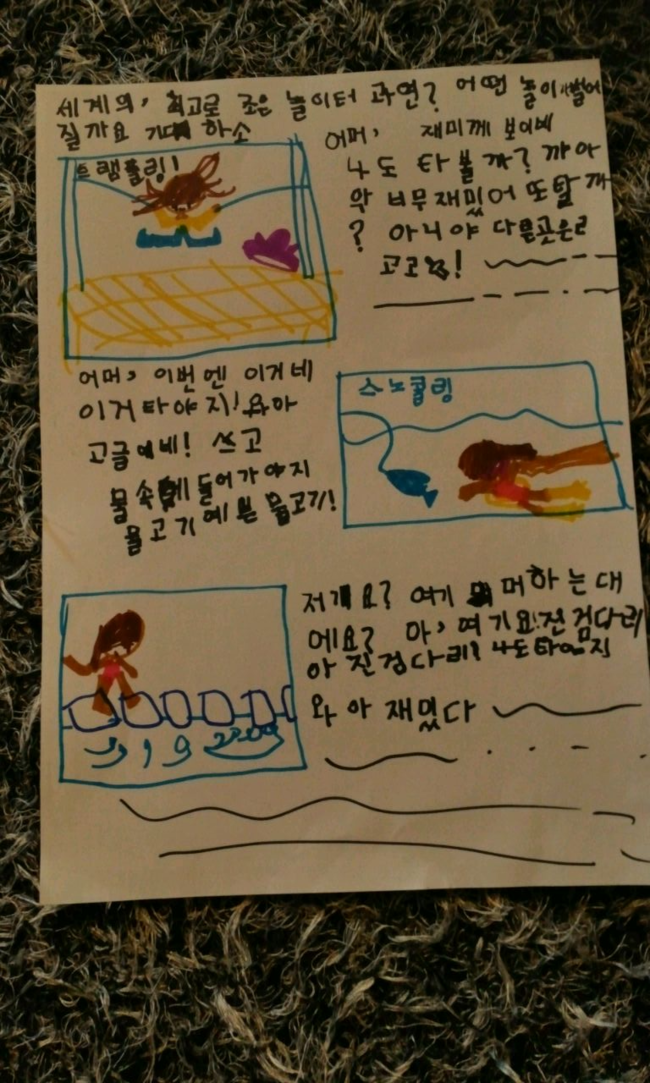 세게의, 최고로 조은 놀이터 과연? 어떤 놀이 벌어
질까요 기대 하소
트램폴링!
어머, 재미께 보이네
나도 타 볼까? 까아
악 너무재밌어 또탈까
? 아니야 다른곳은로
고고!
어머, 이번엔 이거네
이거 타야지!
고글이네! 쓰고
물속에 들어가야지
물고기예쁜 물고기!
스노쿨링
저개요? 여기 머하는대
에요? 아, 여기요!진검다리
아 진검다리? 나도타야지
와 아 재밌다